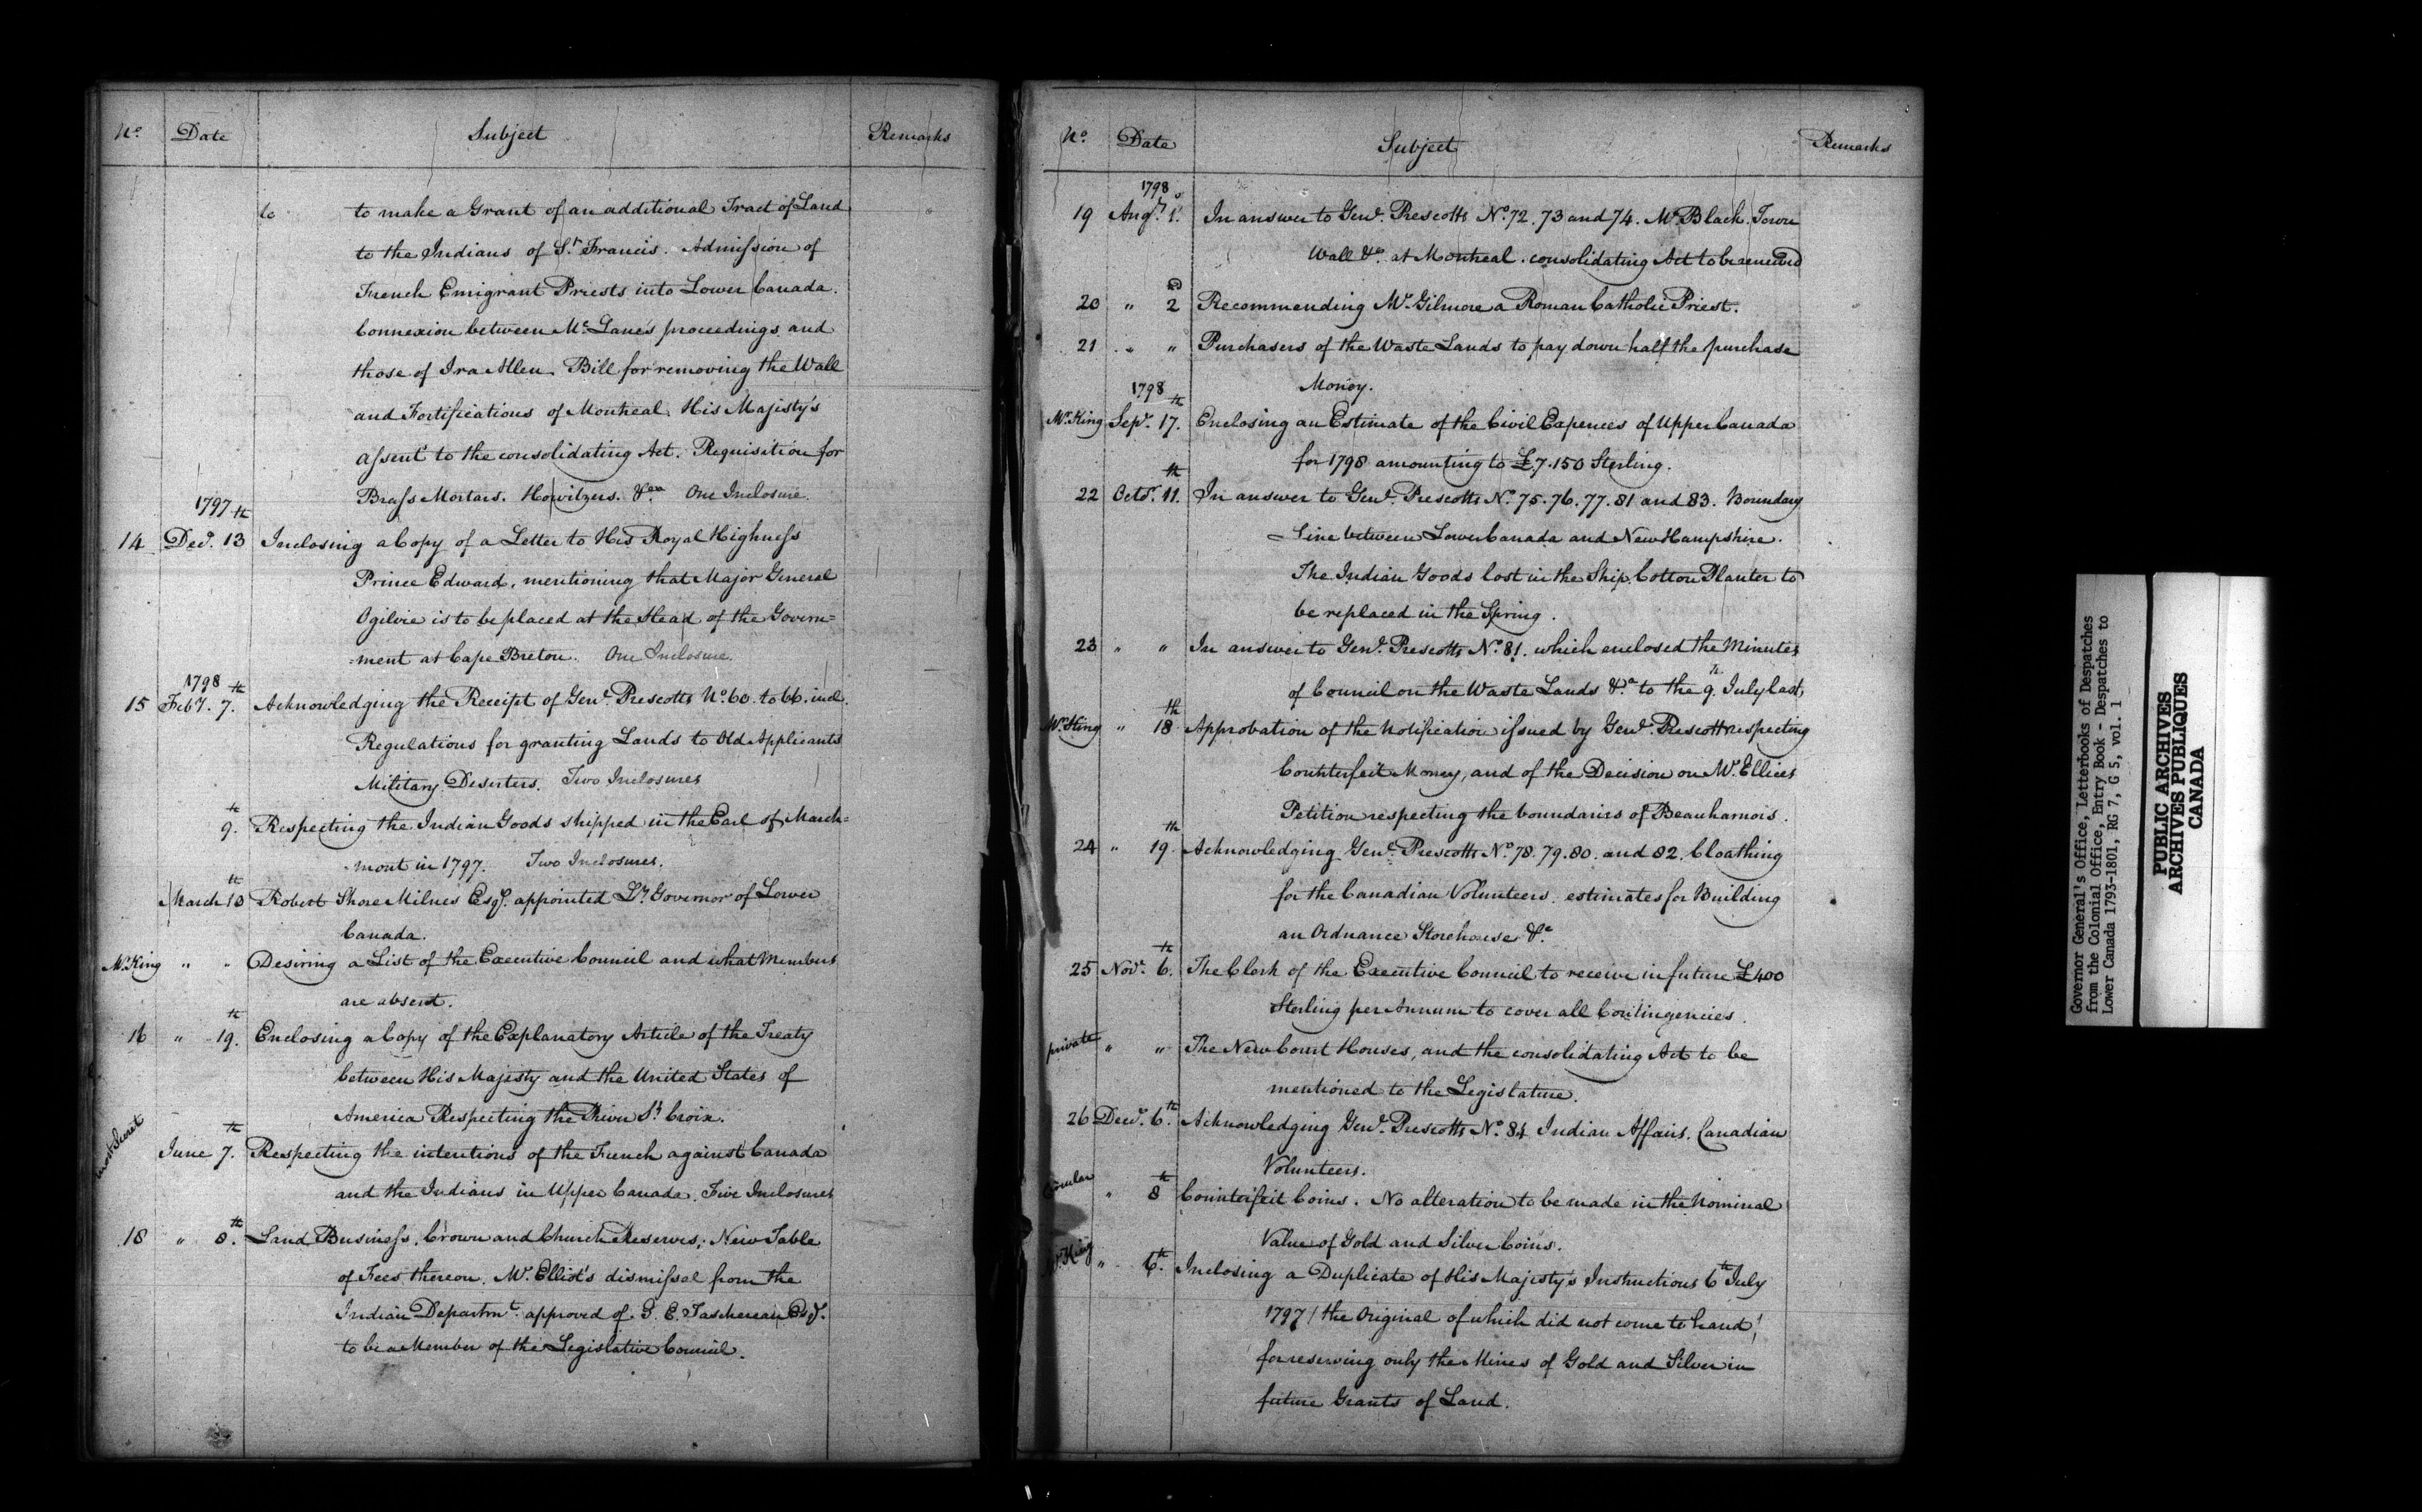 No. Date Subject Remarks
to to make a Grant of an additional Tract of Land
to the Indians of St. Francis. Admission of
French Emigrant Priests into Lower Canada.
Connexion between Mc Lane's proceedings and
those of Ira Allen. Bill for removing the Wall
and Fortifications of Montreal. His Majesty's
assent to the consolidating Act. Requisition for
Brass Mortars. Howitzers. &ca. One Inclosure.
1797
14 Decr. 13th Inclosing a Copy of a Letter to His Royal Highness
Prince Edward, mentioning that Major General
Ogilvie is to be placed at the Head of the Govern=
=ment at Cape Breton. One Inclosure.
1798
15 Feby. 7th. Acknowledging the Receipt of Genl. Prescotts No. 60. to 66. incl.
Regulations for granting Lands to Old Applicants
Military Deserters. Two Inclosures
9th. Respecting the Indian Goods shipped in the Earl of March=
=mont in 1797. Two Inclosures.
March 13th Robert Shore Milnes Esqr. appointed Lt. Governor of Lower
Canada.
Mr. King " " Desiring a List of the Executive Council and what Members
are absent.
16 " 19th. Enclosing a Copy of the Explanatory Article of the Treaty
between His Majesty and the United States of
America Respecting the River St. Croix.
most Secret
June 7th. Respecting the intentions of the French against Canada
and the Indians in Upper Canada. Five Inclosures
18 " 8th. Land Business, Crown and Church Reserves; New Table
of Fees thereon. Mr. Elliot's dismissal from the
Indian Departmt. approved of. G. E. Taschereau Esqr.
to be a Member of the Legislative Council.
No. Date Subject Remarks
1798
19 Augt. 1. In answer to Genl. Prescotts No. 72. 73 and 74. Mr. Black. Town
Wall &ca. at Montreal. consolidating Act to be renewed
20 " 2d Recommending Mr. Gilmore a Roman Catholic Priest.
21 " " Purchasers of the Waste Lands to pay down half the purchase
Money.
1798
Mr. King Sepr. 17th. Enclosing an Estimate of the Civil Expences of Upper Canada
for 1798 amounting to £7.150 Sterling.
22 Octr. 11th. In answer to Genl. Prescotts No. 75. 76. 77. 81 and 83. Boundary
Line between Lower Canada and New Hampshire.
The Indian Goods lost in the Ship Cotton Planter to
be replaced in the Spring.
23 " " In answer to Genl. Prescotts No. 81. which enclosed the Minutes
of Council on the Waste Lands &ca. to the 9th. July last,
Mr. King " 18th Approbation of the Notification issued by Genl. Prescott respecting
Counterfeit Money, and of the Decision on Mr. Ellices
Petition respecting the boundaries of Beauharnois.
24 " 19th Acknowledging Genl. Prescotts No. 78. 79. 80. and 82. Cloathing
for the Canadian Volunteers. estimates for Building
an Ordnance Storehouse &ca.
25 Novr. 6th. The Clerk of the Executive Council to receive in future £400
Sterling per Annum to cover all Contingencies.
private " " The New Court Houses, and the consolidating Act to be
mentioned to the Legislature.
26 Decr. 6th. Acknowledging Genl. Prescotts No. 84 Indian Affairs. Canadian
Volunteers.
Circular " 8th Counterfeit Coins. No alteration to be made in the Nominal
Value of Gold and Silver Coins.
Mr. King " 6th. Inclosing a Duplicate of His Majesty's Instructions 6th July
1797 / the Original of which did not come to hand /
for reserving only the Mines of Gold and Silver in
future Grants of Land.
Governor General's Office, Letterbooks of Despatches
from the Colonial Office, Entry Book - Despatches to
Lower Canada 1793-1801, RG 7, G 5, vol. 1
PUBLIC ARCHIVES
ARCHIVES PUBLIQUES
CANADA